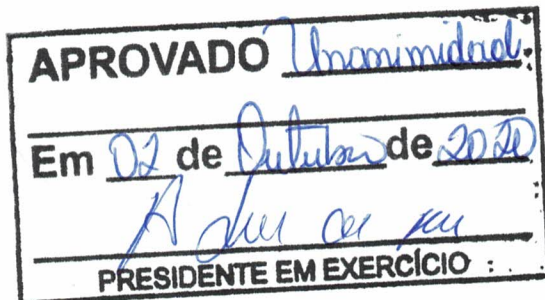 APROVADO Unanimidad.
Em 02 de Outubro de 2020
PRESIDENTE EM EXERCÍCIO